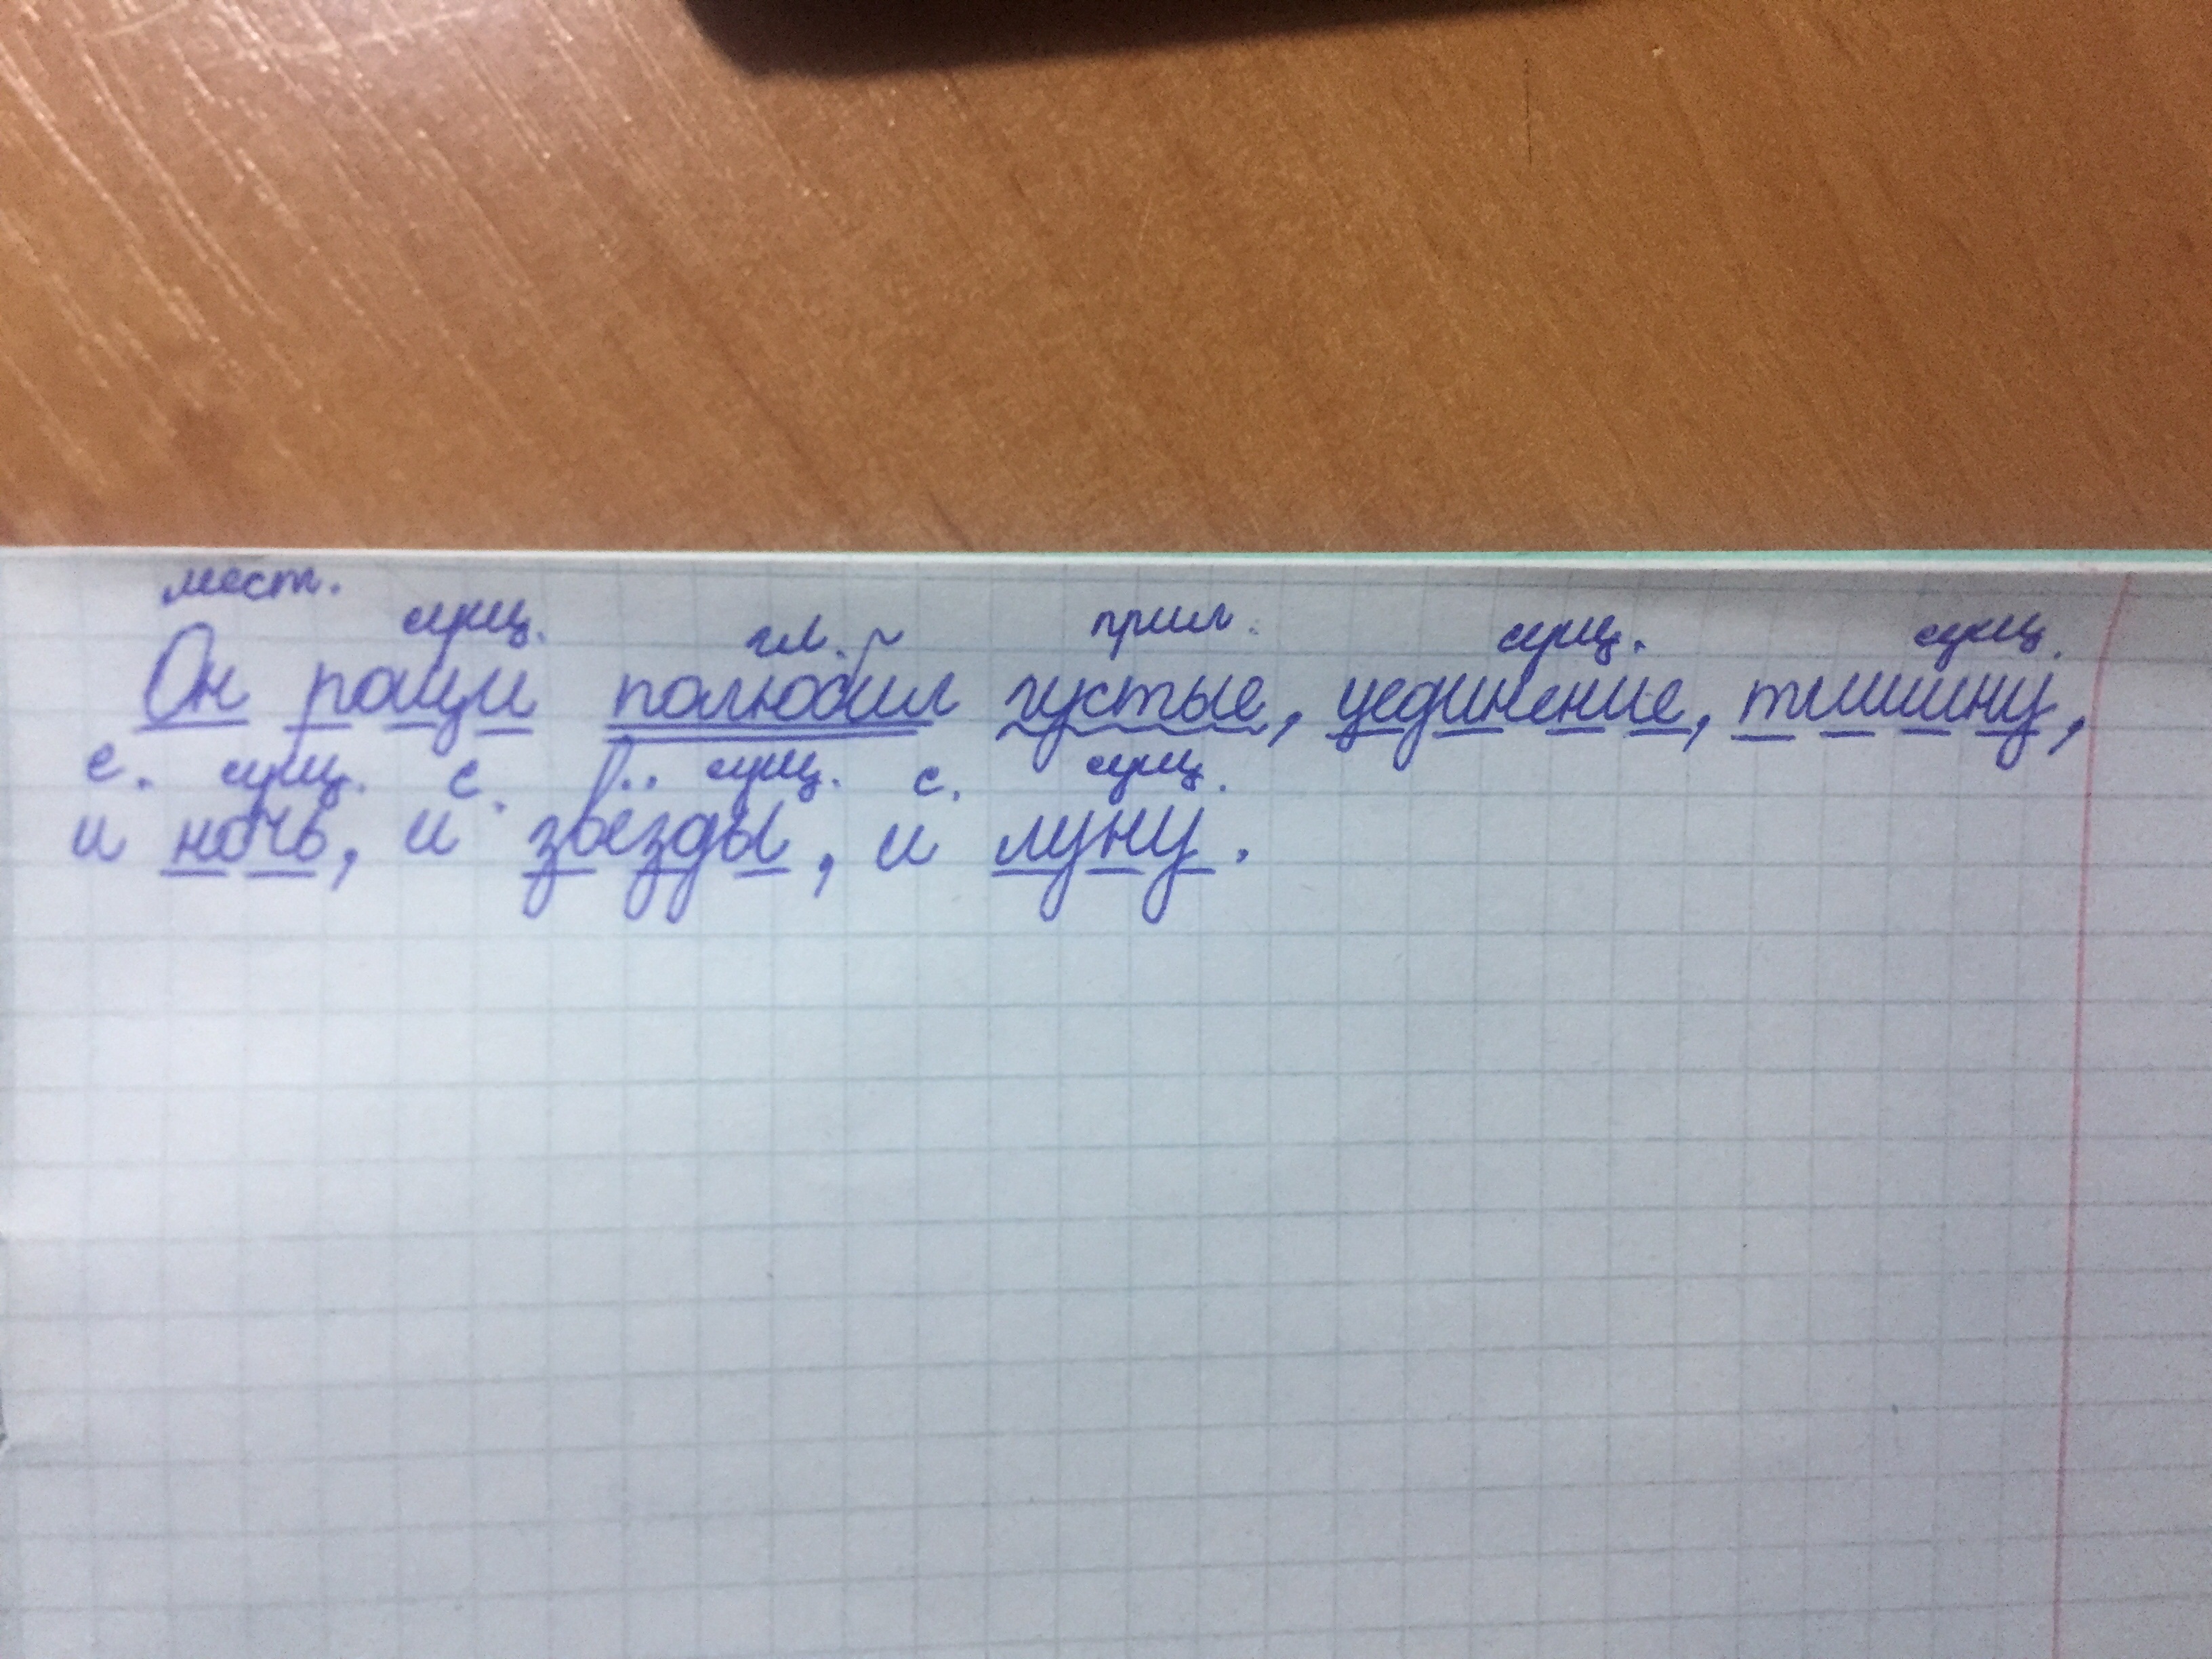 мест. сущ. гл. прил. сущ. сущ.
Он рощи полюбил густые, уединение, тишину,
с. сущ. с. сущ. с. сущ.
и ночь, и звёзды, и луну.